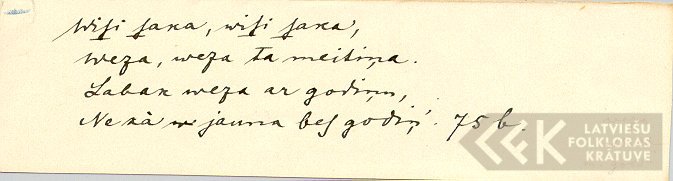 Wiſi ſaka, wiſi ſaka,
weza, weza ta meitiņa.
Labak weza ar godiņu,
Nekà jauna beſ godiņ'. 75 b.
LATVIEŠU
FOLKLORAS
KRĀTUVE